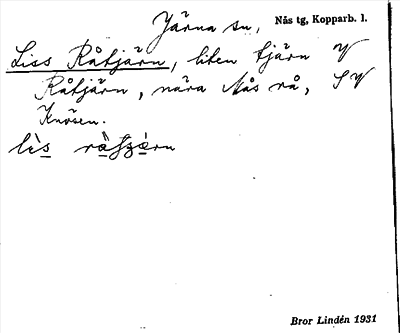 Järna sn, Nås tg, Kopparb. l.
Liss Råtjärn, liten tjärn V
Råtjärn, nära Nås rå, SV
Knösen.
Bror Lindén 1931